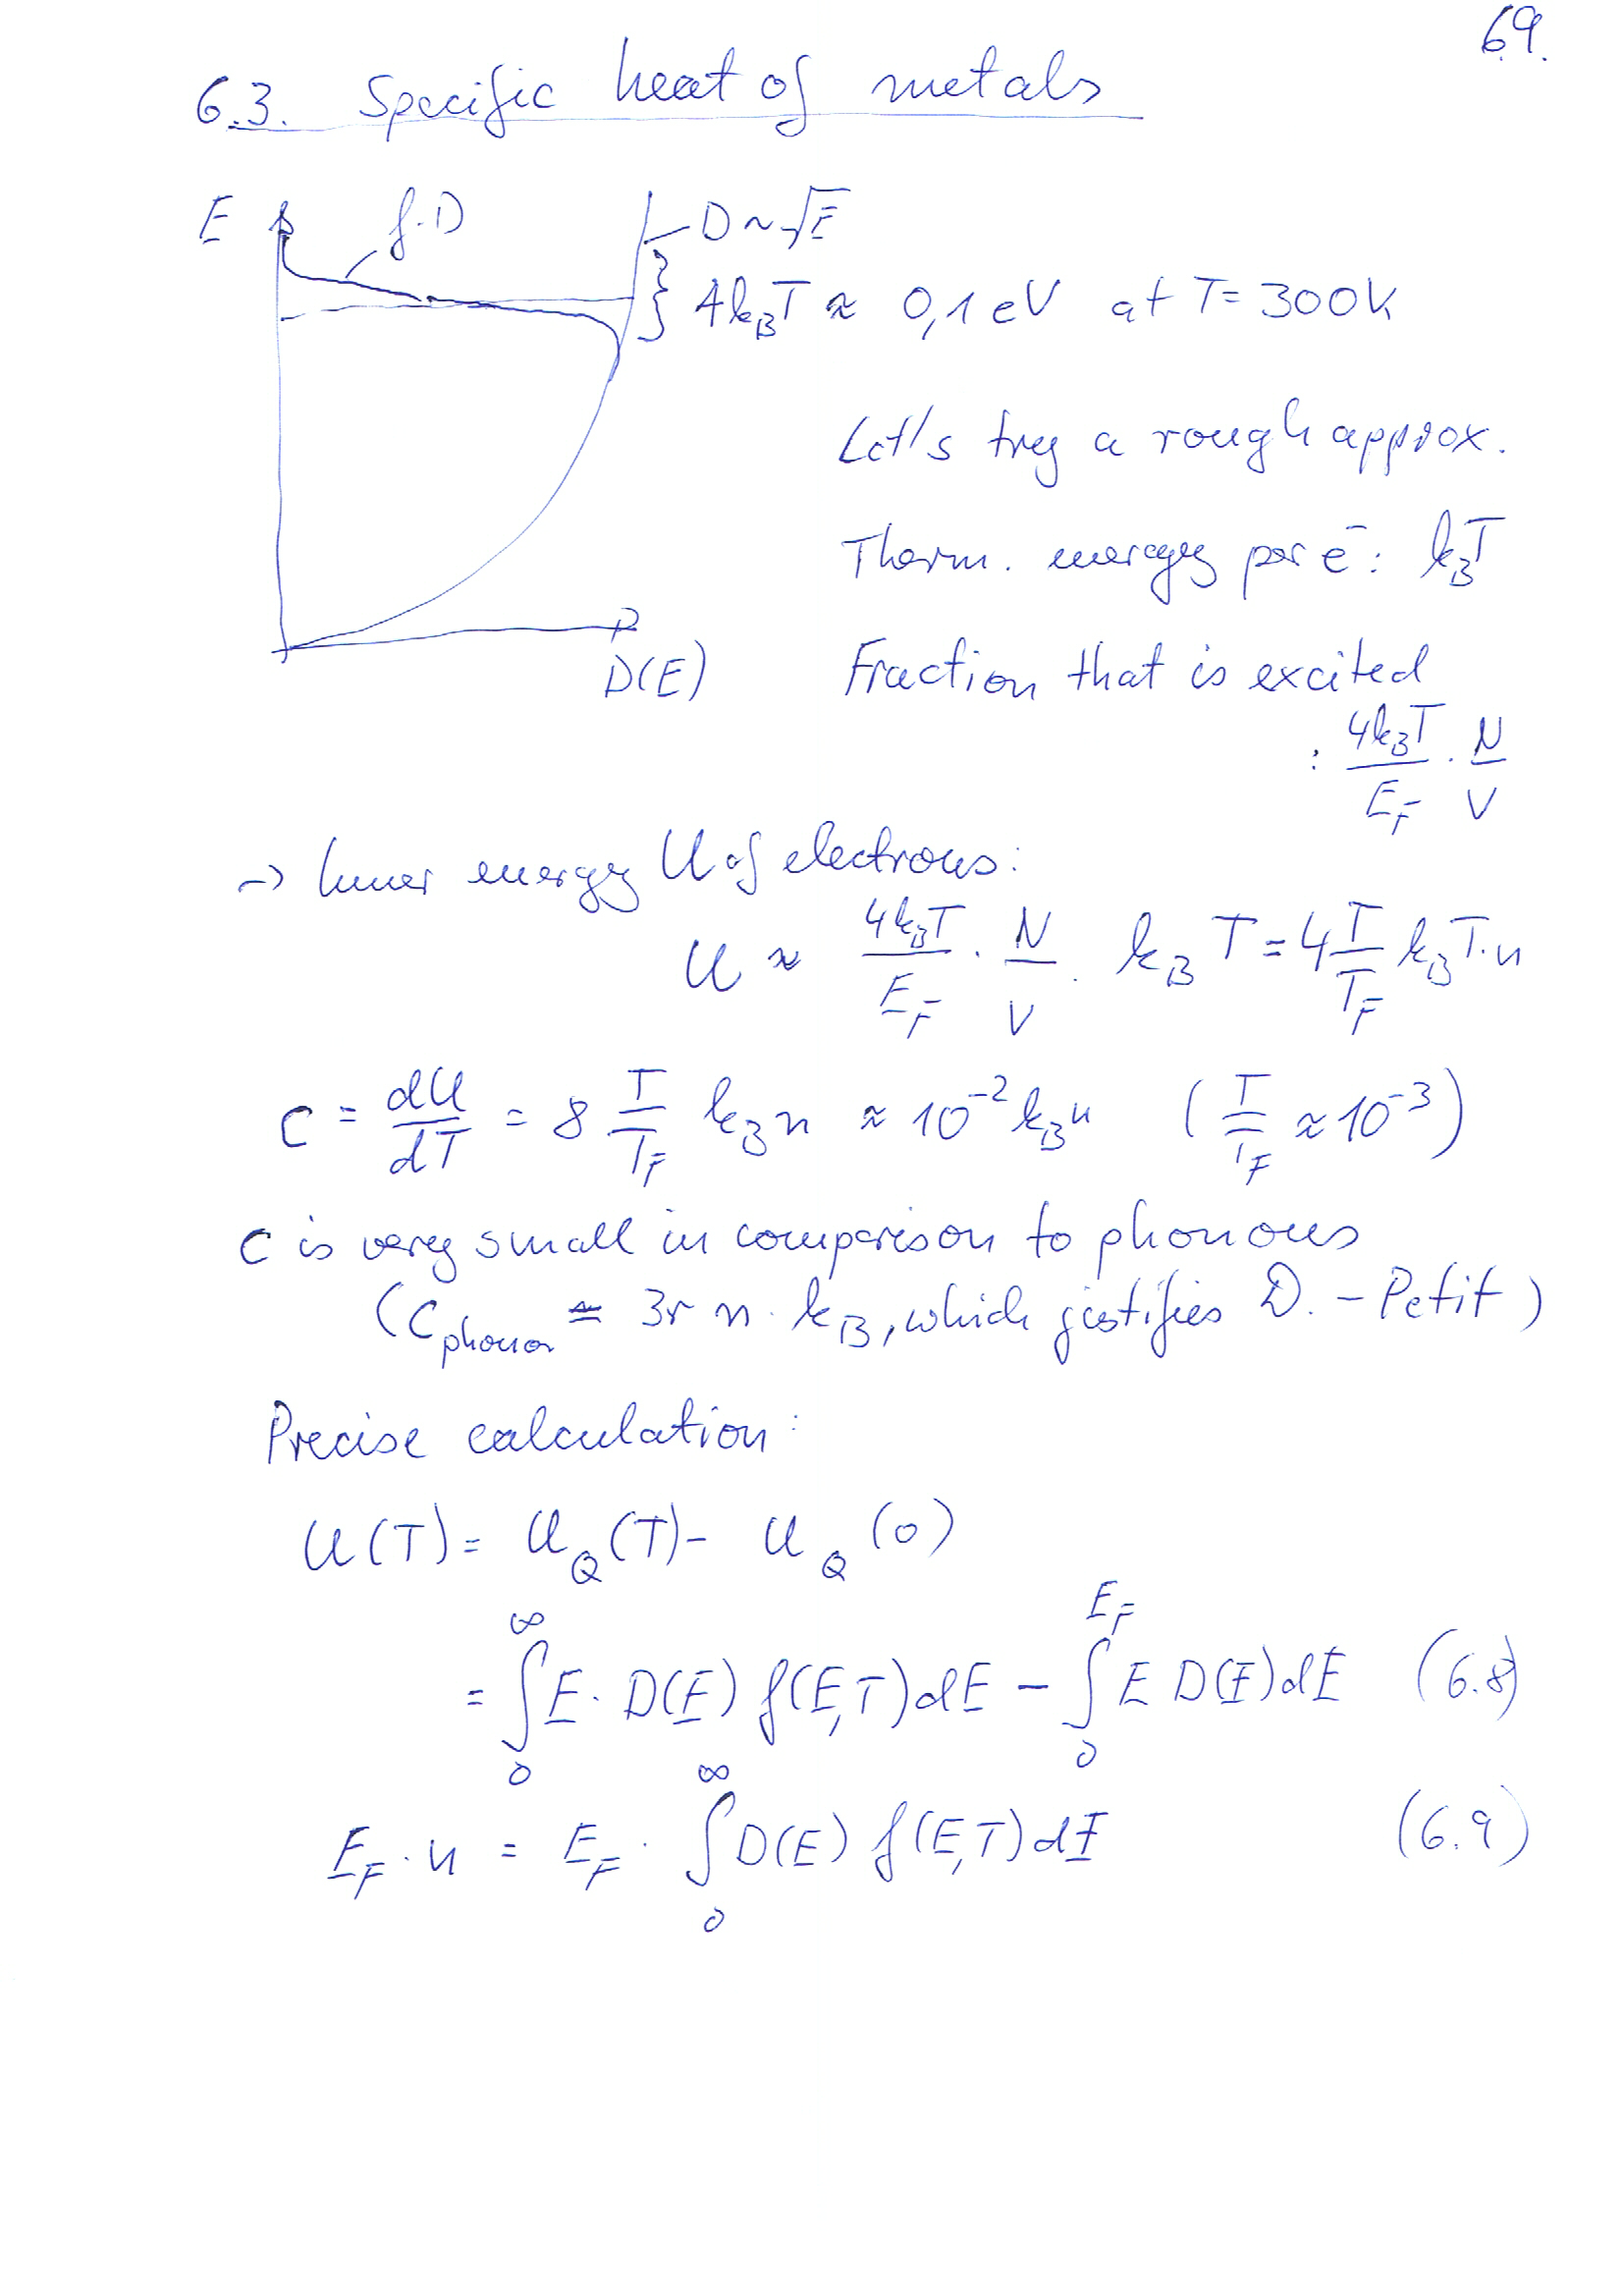 69.
6.3. Specific heat of metals
E f·D D ~ √E
} 4k_BT ≈ 0,1 eV at T = 300K
Let's try a rough approx.
Therm. energy per e⁻: k_BT
D(E) Fraction that is excited
: 4k_BT/E_F · N/V
→ Inner energy U of electrons:
U ≈ 4k_BT/E_F · N/V · k_B T = 4 T/T_F k_BT·n
c = dU/dT = 8 T/T_F k_B n ≈ 10⁻² k_B n (T/T_F ≈ 10⁻³)
c is very small in comparison to phonons
(c_phonon ≃ 3r n · k_B, which justifies D.-Petit)
Precise calculation:
U(T) = U_Q(T) - U_Q(0)
= ∫₀^∞ E · D(E) f(E,T) dE - ∫₀^{E_F} E D(E) dE (6.8)
E_F · n = E_F · ∫₀^∞ D(E) f(E,T) dE (6.9)